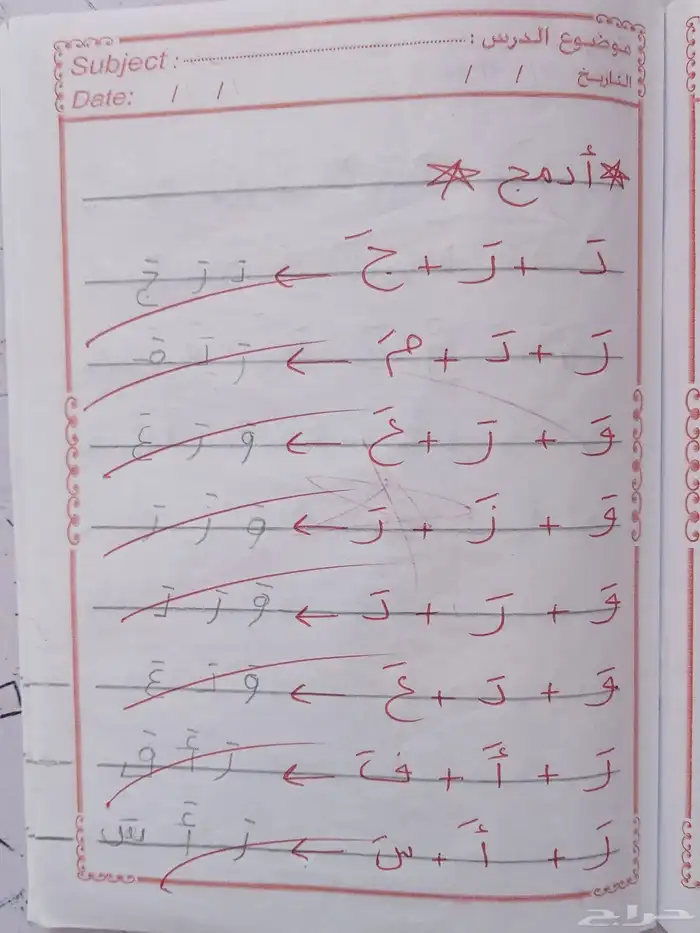 موضوع الدرس :
Subject :
التاريخ / /
Date: / /
* أدمج *
دَ + رَ + جَ ← دَ رَ جَ
رَ + دَ + مَ ← رَ دَ مَ
وَ + رَ + عَ ← وَ رَ عَ
وَ + زَ + رَ ← وَ زَ رَ
وَ + رَ + دَ ← وَ رَ دَ
وَ + دَ + عَ ← وَ دَ عَ
رَ + أَ + فَ ← رَ أَ فَ
رَ + أَ + سَ ← رَ أَ سَ
حراج